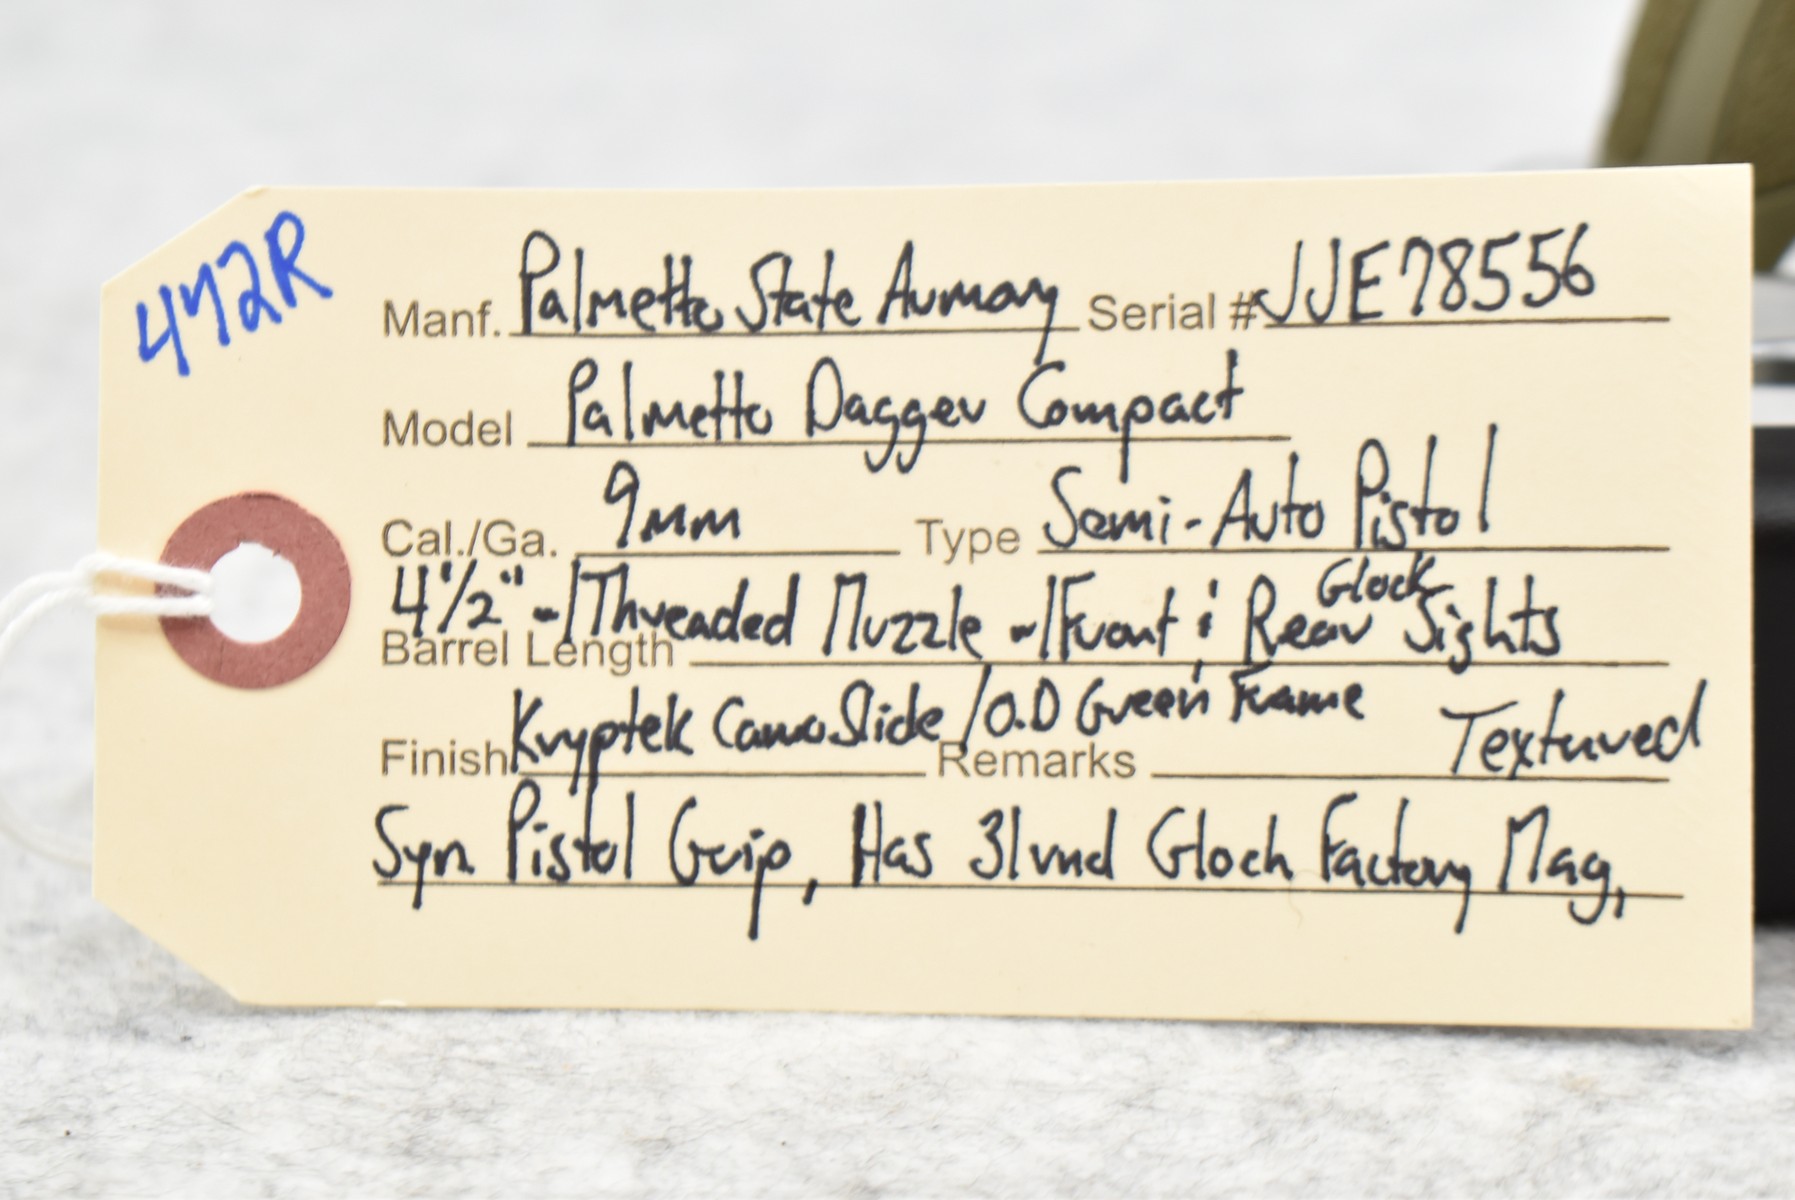 472R
Manf. Palmetto State Armory Serial # JJE78556
Model Palmetto Dagger Compact
Cal./Ga. 9mm Type Semi-Auto Pistol
Barrel Length 4 1/2" w/Threaded Muzzle w/Front & Rear Glock Sights
Finish Kryptek Camo Slide / O.D Green Frame Remarks Textured
Syn. Pistol Grip, Has 31rnd Glock Factory Mag,